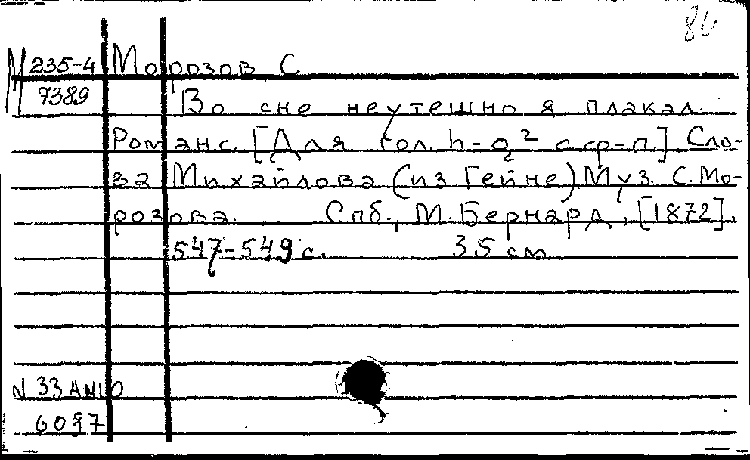 86
М 235-4 Морозов С.
7389 Во сне неутешно я плакал.
Романс. [Для гол. h-g² с ср-п] Сло-
ва Михайлова (из Гейне) Муз. С. Мо-
розова. Спб., М. Бернард, [1872].
547-549 с. 35 см
N 33
6097